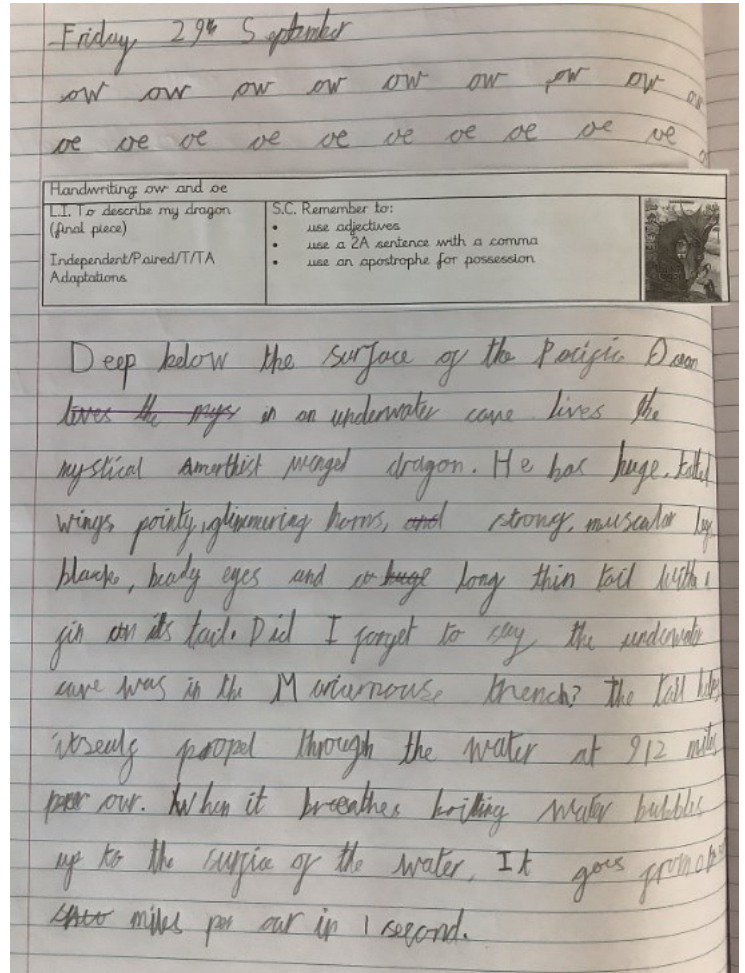 Friday 29th September
ow ow ow ow ow ow ow ow ow
oe oe oe oe oe oe oe oe oe oe
Handwriting ow and oe
L.I. To describe my dragon
(final piece)
Independent/Paired/T/TA
Adaptations
S.C. Remember to:
• use adjectives
• use a 2A sentence with a comma
• use an apostrophe for possession
Deep below the surface of the Pacific Ocean
lives the mys in an underwater cave lives the
mystical Amerthist winged dragon. He has huge,
wings, pointy, glimmering horns, and strong, muscular
black, beady eyes and huge long thin tail with a
fin on its tail. Did I forget to say the underwater
cave was in the Mariarnouse trench? the tail helps
itself propel through the water at 912 miles
per our. When it breathes boiling water bubbles
up to the surfice of the water, It goes from
miles per our in 1 second.